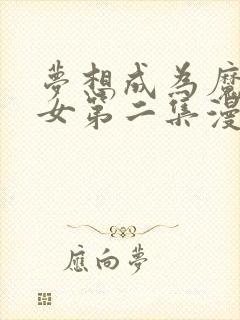 夢想成為魔
女第二集漫
應向夢